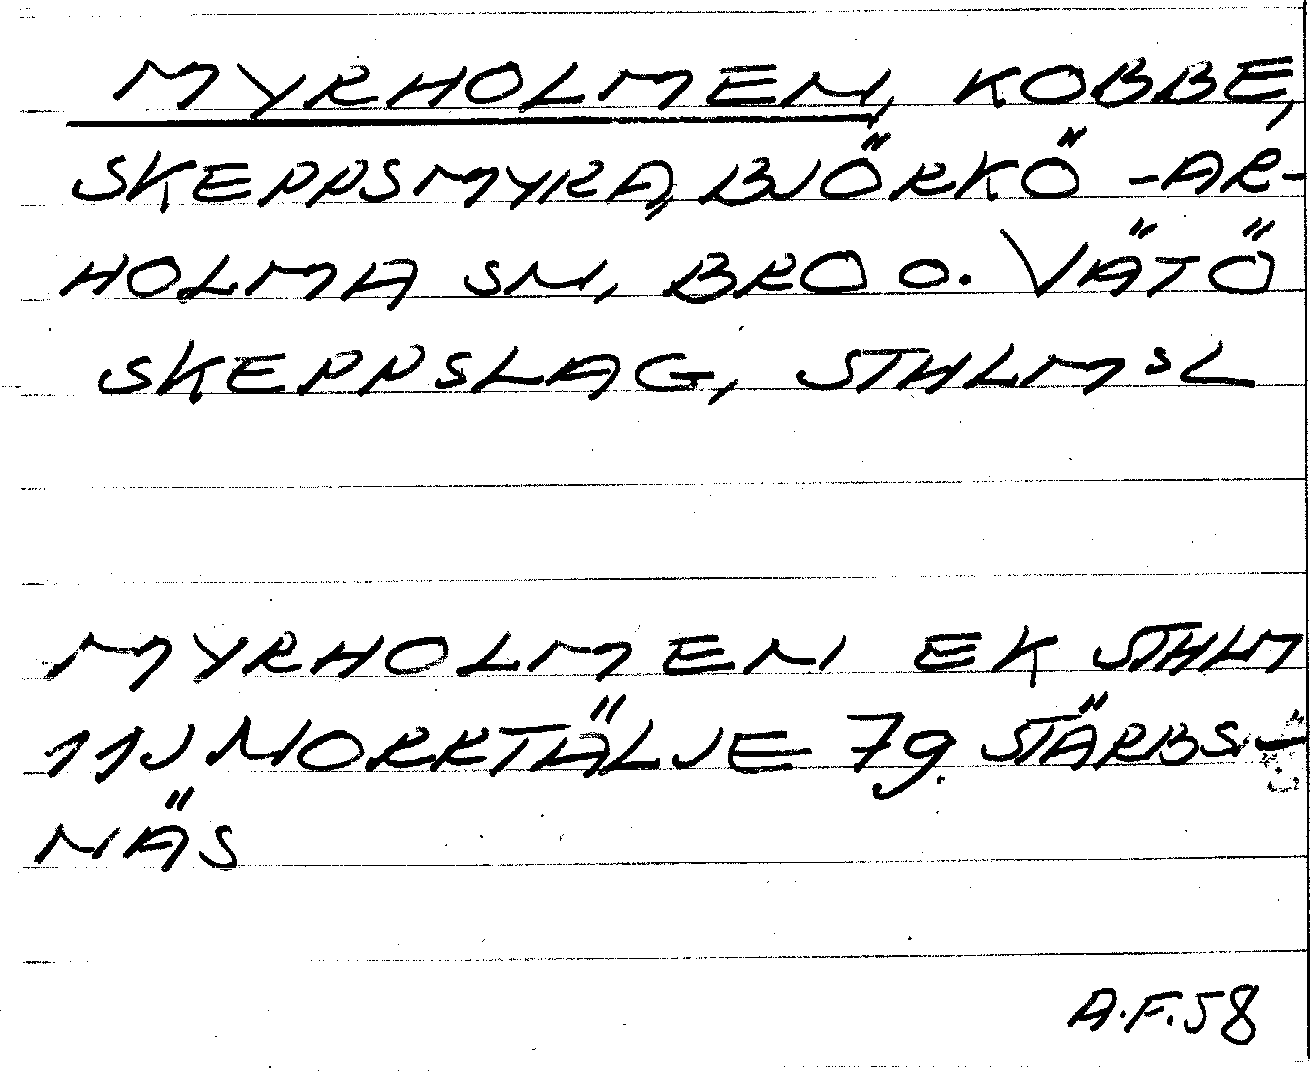 MYRHOLMEN, KOBBE,
SKEPPSMYRA, BJÖRKÖ-AR-
HOLMA SN, BRO O. VÄTÖ
SKEPPSLAG, STHLMSL
MYRHOLMEN EK STHLM
11J NORRTÄLJE 79. STÄRBS-
NÄS
A.F.58